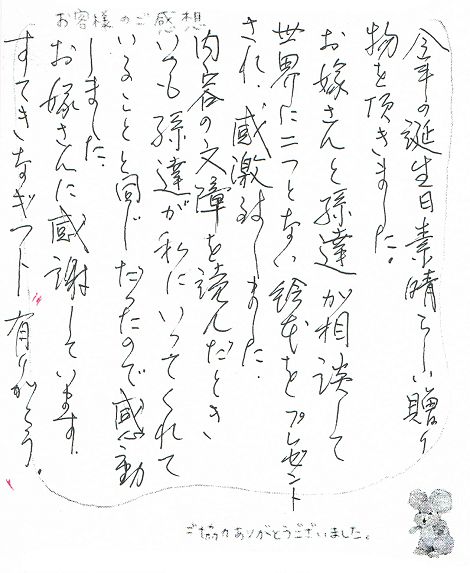 お客様のご感想
今年の誕生日素晴らしい贈り
物を頂きました。
お嫁さんと孫達が相談して
世界に二つとない絵本をプレゼント
され、感激致しました.
内容の文障を読んだとき、
いつも孫達が私にいってくれて
いることと同じだったので感動
しました.
お嫁さんに感謝しています.
すてきなギフト 有りがとう。
ご協力ありがとうございました。